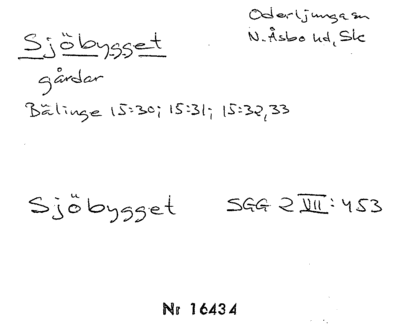 Sjöbygget
Oderljunga sn
N. Åsbo hd, Sk
gårdar
Bälinge 15:30; 15:31; 15:32,33
Sjöbygget SGG 2 VII: 453
Nr 16434